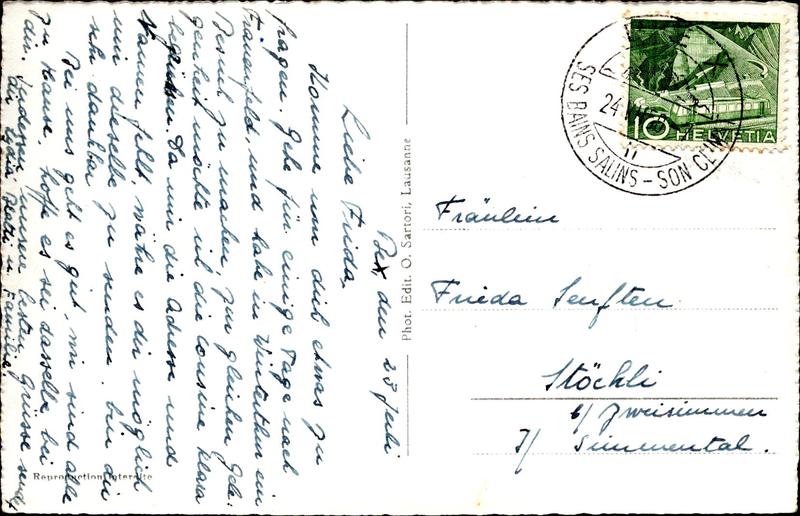 Bex den 23 Juli
Liebe Frieda.
Komme um dich etwas zu
fragen. Gehe für einige Tage nach
Frauenfeld, und habe in Winterthur ein
Besuch zu machen, zur gleichen Gele-
genheit möchte ich die cousine Klara
begrüssen. Da mir die Adresse und
Namen fehlt, wäre es dir möglich
mir dieselbe zu senden, bin dir
sehr dankbar
Bei uns geht es gut, wir sind alle
zu Hause, hoffe es sei dasselbe bei
dir. Indessen unsere besten Grüsse sendet
dir Lydia u. Familie
Phot. Edit. O. Sartori, Lausanne
Reproduction interdite
BEX
24
SES BAINS SALINS - SON CLIMAT
10 HELVETIA
Fräulein
Frieda Senften
Stöchli
b/ Zweisimmen
J/ Simmental.